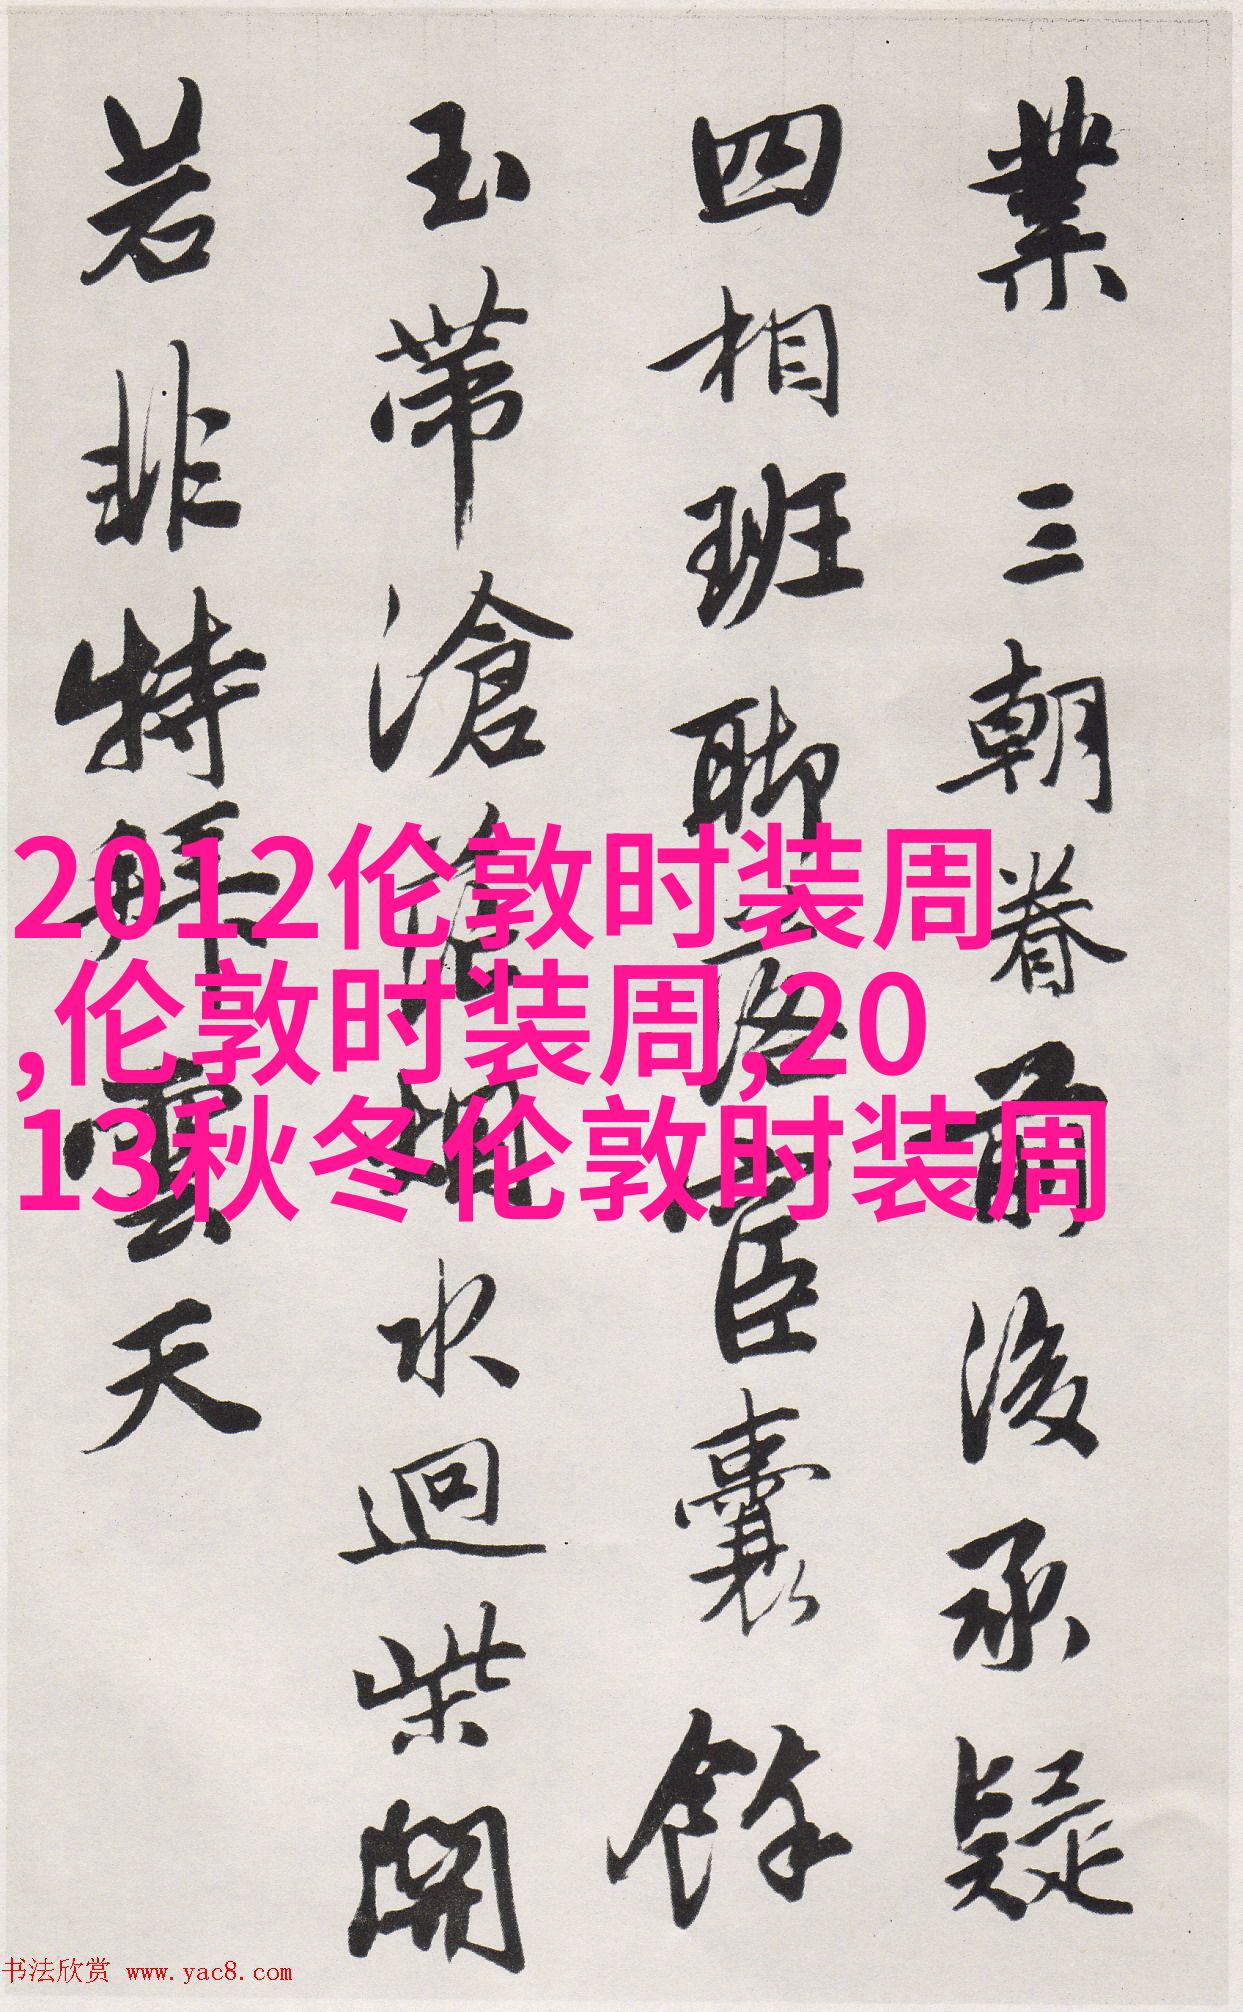 業 三朝眷前後承疑
四相班聊臣囊餘
玉帶滄水迴柴開
若非特拜雲天
2012伦敦时装周
,伦敦时装周,20
13秋冬伦敦时装周
书法欣赏 www.yac8.com